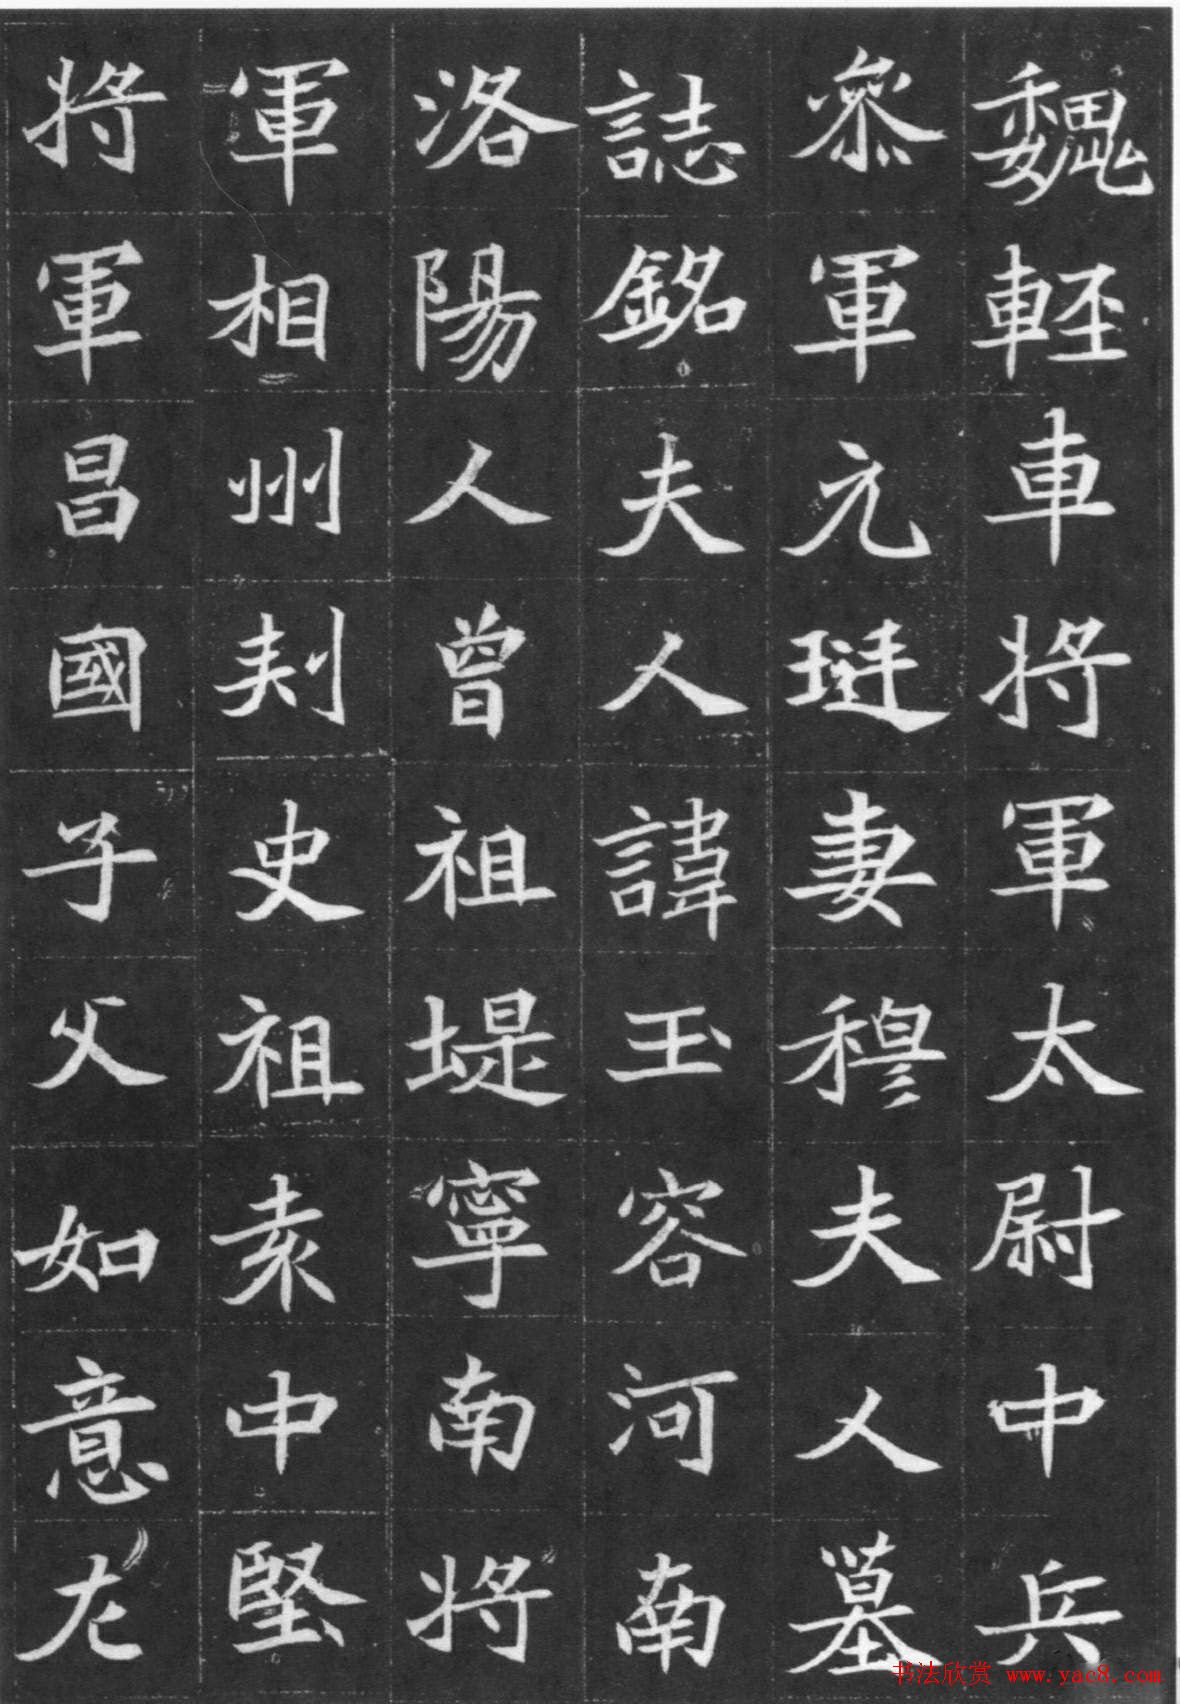 魏輕車將軍太尉中兵
參軍元珽妻穆夫人墓
誌銘夫人諱玉容河南
洛陽人曾祖堤寧南將
軍相州刾史祖袁中堅
將軍昌國子父如意左
书法欣赏 www.yac8.com